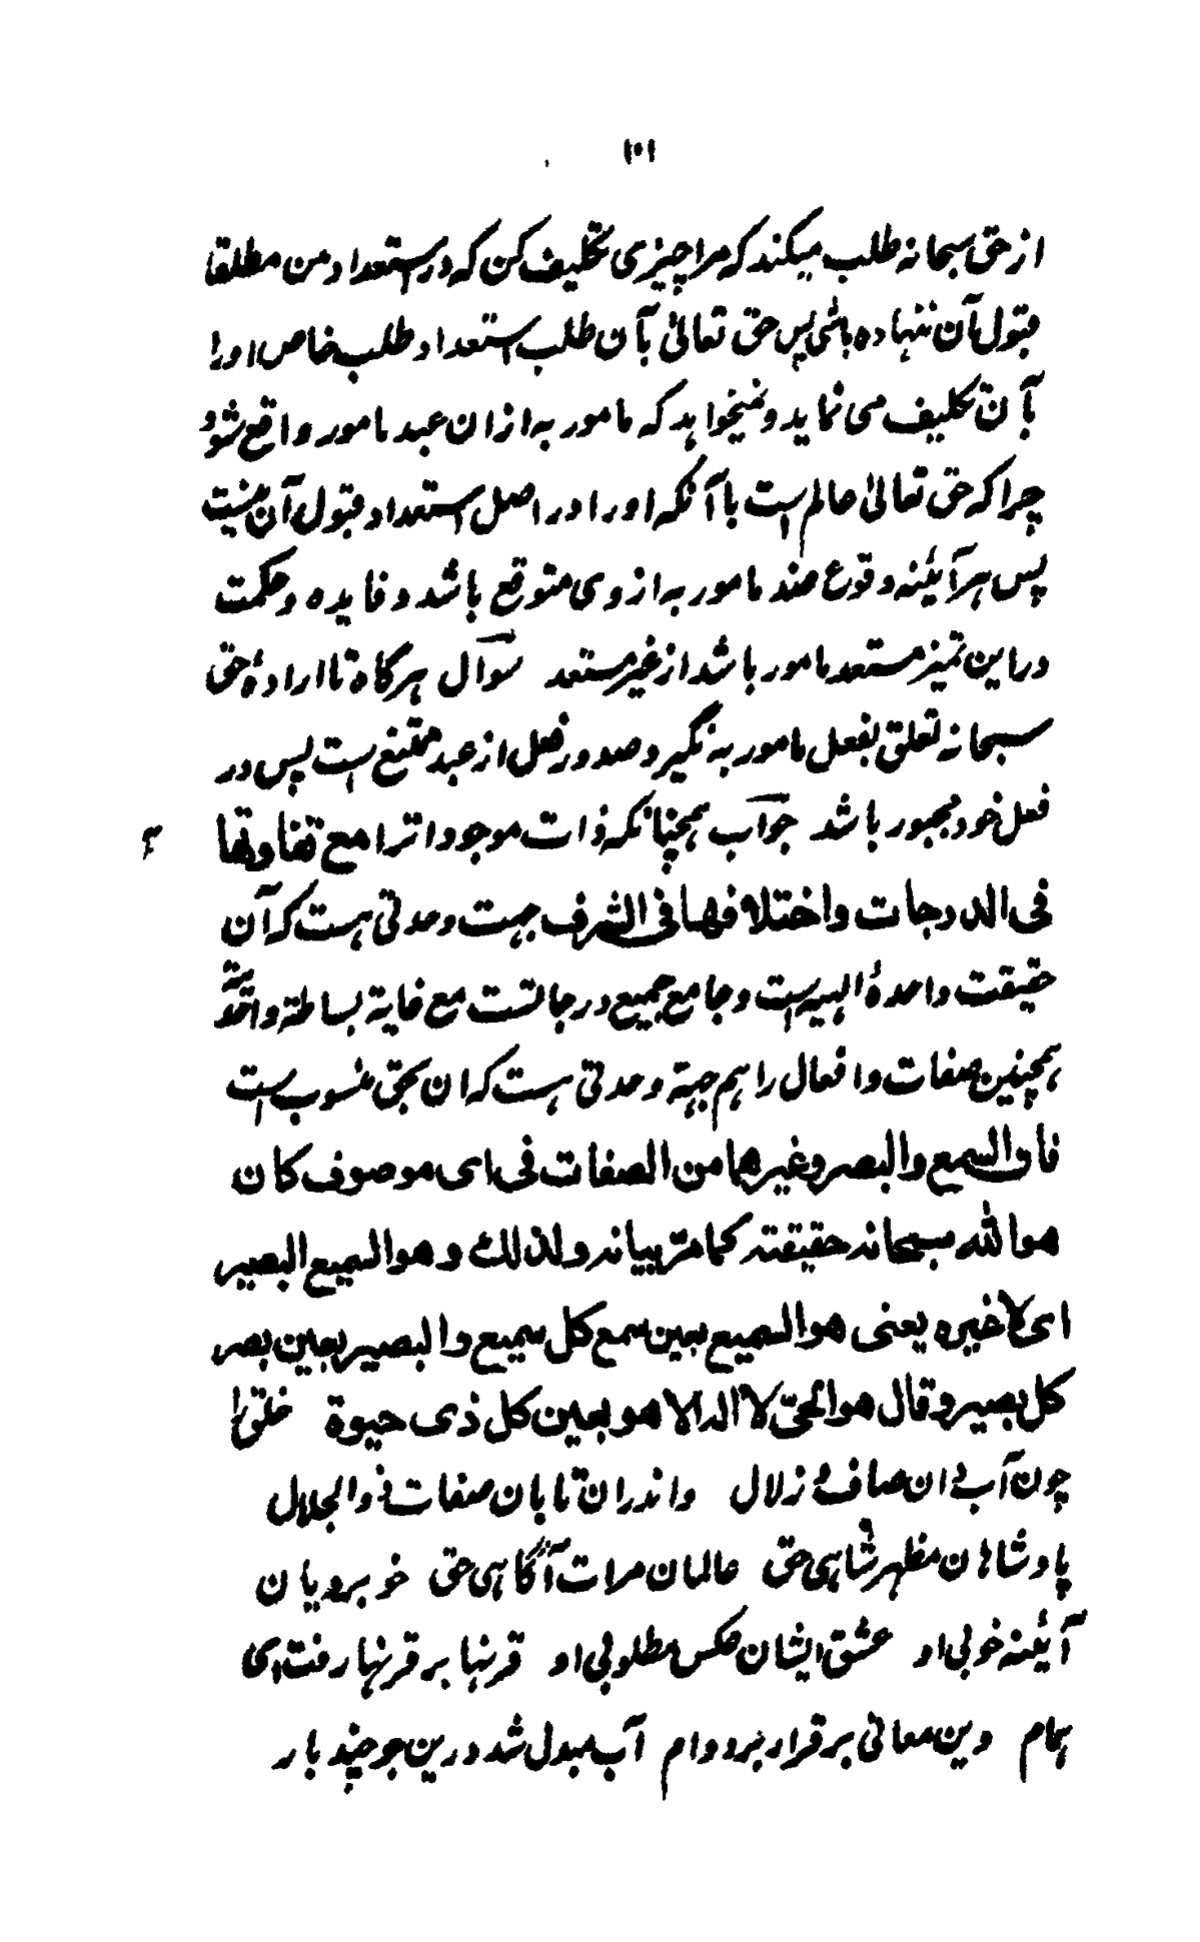 ۱۰۱
از حق سبحانه طلب میکند که مرا چیزی تکلیف کن که در استعداد من مطلقا
قبول آن ننهاده باشی پس حق تعالیٰ بآن طلب استعداد طلب خاص او را
بآن تکلیف می نماید و نمیخواهد که مامور به ازان عبد مامور واقع شود
چرا که حق تعالیٰ عالم است با آنکه او را در اصل استعداد قبول آن نیست
پس هر آئینه وقوع ضد مامور به از وی متوقع باشد و فایده و حکمت
در این تمیز مستعد مامور باشد از غیر مستعد سوال هرگاه تا ارادۀ حق
سبحانه تعلق بفعل مامور به نگیرد صدور فعل از عبد ممتنع است پس در
فعل خود مجبور باشد جواب همچنانکه ذات موجودات را مع تفاوتها
فی الدرجات واختلافها فی الشرف جهت وحدتی هست که آن
حقیقت واحدۀ الهیه است و جامع جمیع درجاتست مع غایة بساطة و احدیّة
همچنین صفات و افعال را هم جهة وحدتی هست که ان بحق منسوب است
فان السمع والبصر وغیرهما من الصفات فی ای موصوف کان
هو الله سبحانه حقیقته کما مرّ بیانه ولذلك وهو السمیع البصیر
ای لا غیره یعنی هو السمیع بعین سمع کل سمیع والبصیر بعین بصر
کل بصیر وقال هو الحیّ لا اله الا هو بعین کل ذی حیوة خلق را
چون آب دان صاف و زلال واندران تابان صفات ذوالجلال
پادشاهان مظهر شاهی حق عالمان مرات آگاهی حق خوبرویان
آئینه خوبی او عشق ایشان عکس مطلوبی او قرنها بر قرنها رفت ای
همام وین معانی برقرار و بر دوام آب مبدل شد درین جو چند بار